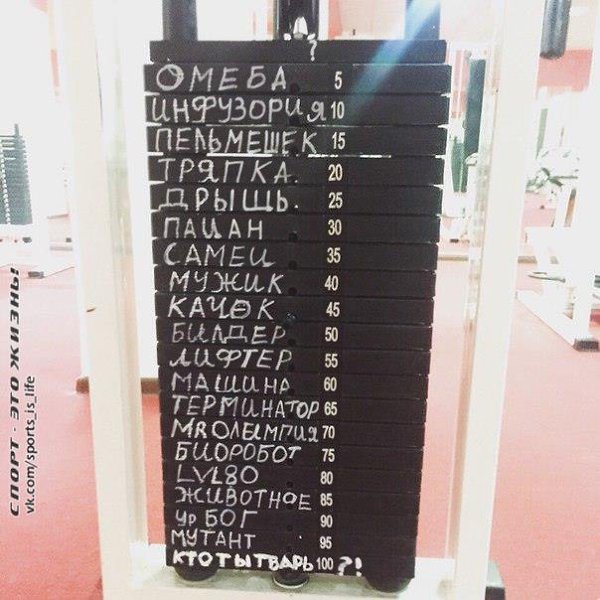 ?
ОМЕБА 5
ИНФУЗОРИЯ 10
ПЕЛЬМЕШЕК 15
ТРЯПКА. 20
ДРЫЩЬ. 25
ПАЦАН 30
САМЕЦ 35
МУЖИК 40
КАЧОК 45
БИЛДЕР 50
ЛИФТЕР 55
МАШИНА 60
ТЕРМИНАТОР 65
MR ОЛЫМПИЯ 70
БИОРОБОТ 75
LVL80 80
ЖИВОТНОЕ 85
ур БОГ 90
МУТАНТ 95
КТО ТЫ ТВАРЬ 100 ?!
СПОРТ - ЭТО ЖИЗНЬ!
vk.com/sports_is_life